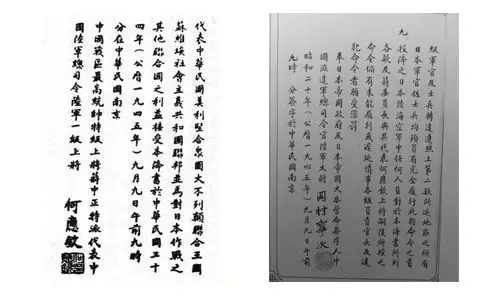 代表中華民國美利堅合眾國大不列顛聯合王國
蘇維埃社會主義共和國聯邦並為對日本作戰之
其他聯合國之利益接受本降書於中華民國三十
四年（公曆一九四五年）九月九日午前九時
分在中華民國南京
中國戰區最高統帥特級上將蔣中正特派代表中
國陸軍總司令陸軍一級上將
何應欽
級軍官及士兵轉達遵照上第二款所述地區之所有
日本軍官佐士兵均須負有完全履行此類命令之責
九
投降之日本陸海空軍中任何人員對於本降書所列
各款及蔣委員長與其代表何應欽上將嗣後所授之
命令倘有未能履行或遲延情事各級負責官長及違
犯命令者願受懲罰
奉日本帝國政府及日本帝國大本營命簽字人中
國派遣軍總司令官陸軍大將
岡村寧次
昭和二十年（公曆一九四五年）九月九日午前
九時 分簽字於中華民國南京